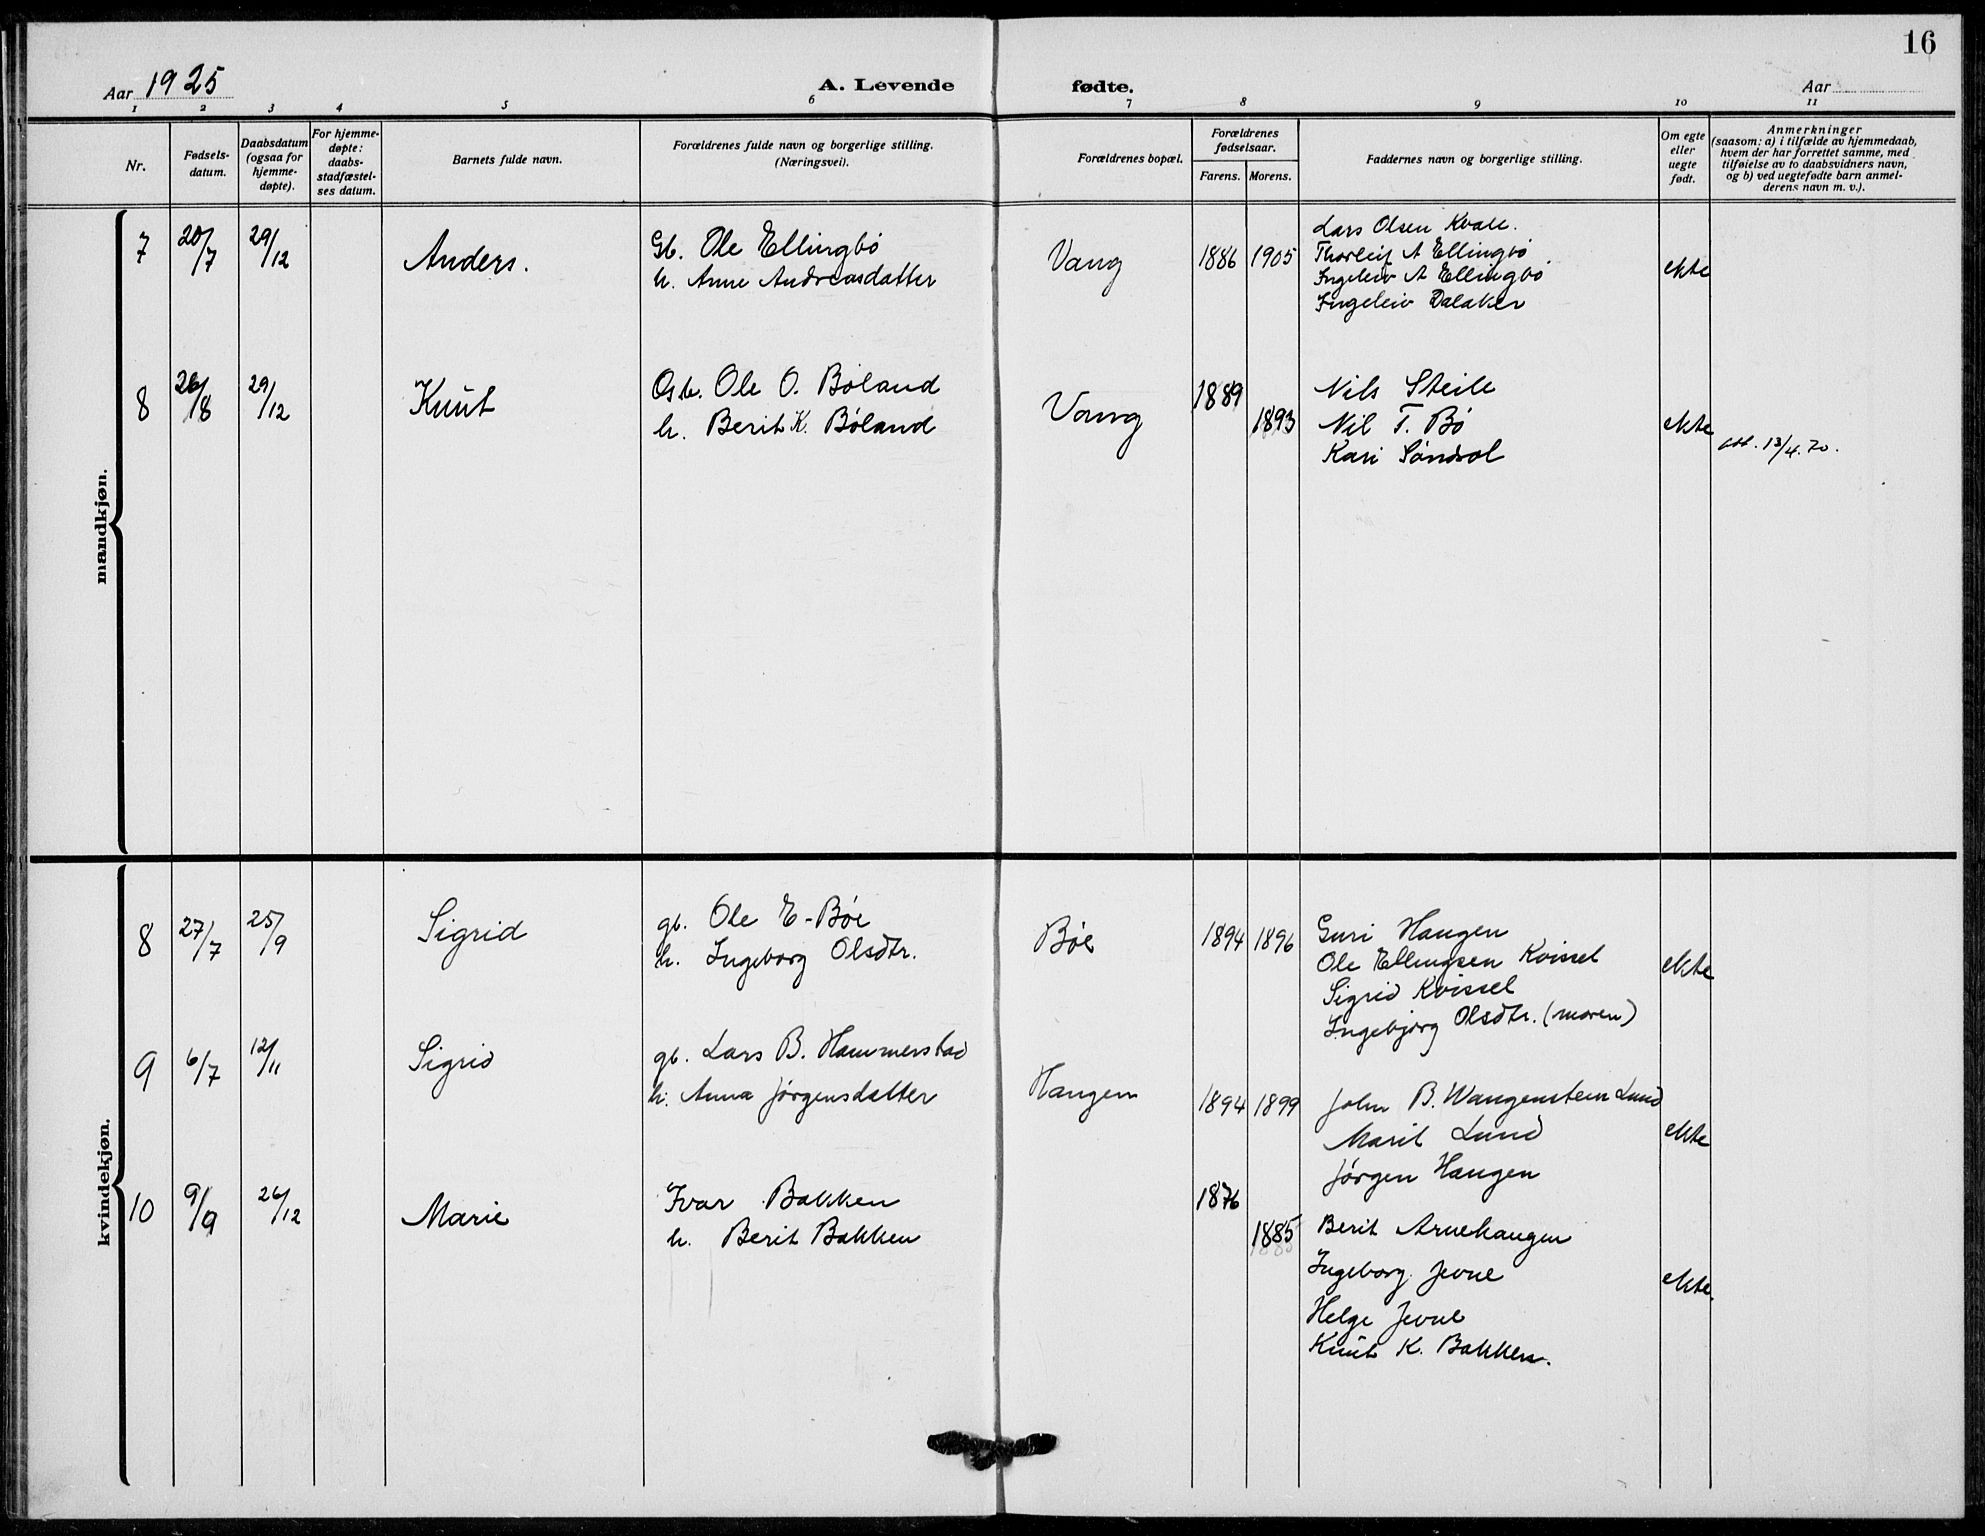 16
Aar 1925
A. Levende fødte.
Aar
1 2 3 4 5 6 7 8 9 10 11
Nr.
Fødsels-
datum.
Daabsdatum
(ogsaa for
hjemme-
døpte).
For hjemme-
døpte:
daabs-
stadfæstel-
ses datum.
Barnets fulde navn.
Forældrenes fulde navn og borgerlige stilling.
(Næringsvei).
Forældrenes bopæl.
Forældrenes
fødselsaar.
Farens. Morens.
Faddernes navn og borgerlige stilling.
Om egte
eller
uegte
født.
Anmerkninger
(saasom: a) i tilfælde av hjemmedaab,
hvem der har forrettet samme, med
tilføielse av to daabsvidners navn,
og b) ved uegtefødte barn anmel-
derens navn m. v.).
mandkjøn.
7 20/7 29/12 Anders.
Gb. Ole Ellingbø
h. Anne Andreasdatter
Vang 1886 1905
Lars Olsen Kvale.
Thorleif A Ellingbø
Ingeleiv A Ellingbø
Ingeleiv Dalaker
ekte
8 26/8 29/12 Knut
Gb. Ole O. Bøland
h. Berit K. Bøland
Vang 1889 1893
Nils Steile
Nil T. Bø
Kari Søndrol
ekte
att. 13/4.70.
kvindekjøn.
8 27/7 25/9 Sigrid
gb. Ole E-Bøe
h. Ingeborg Olsdtr.
Bøe 1894 1896
Guri Haugen
Ole Ellingsen Kvissel
Sigrid Kvissel
Ingebjørg Olsdtr. (moren)
ekte
9 6/7 12/11 Sigrid
gb. Lars B. Hammerstad
h. Anna Jørgensdatter
Haugen 1894 1899
John B. Wangenstein Lund
Marit Lund
Jørgen Haugen
ekte
10 9/9 26/12 Marie
Ivar Bakken
h. Berit Bakken
1876 1885
Berit Arnehaugen
Ingeborg Jevne
Helge Jevne
Knut K. Bakken.
ekte.